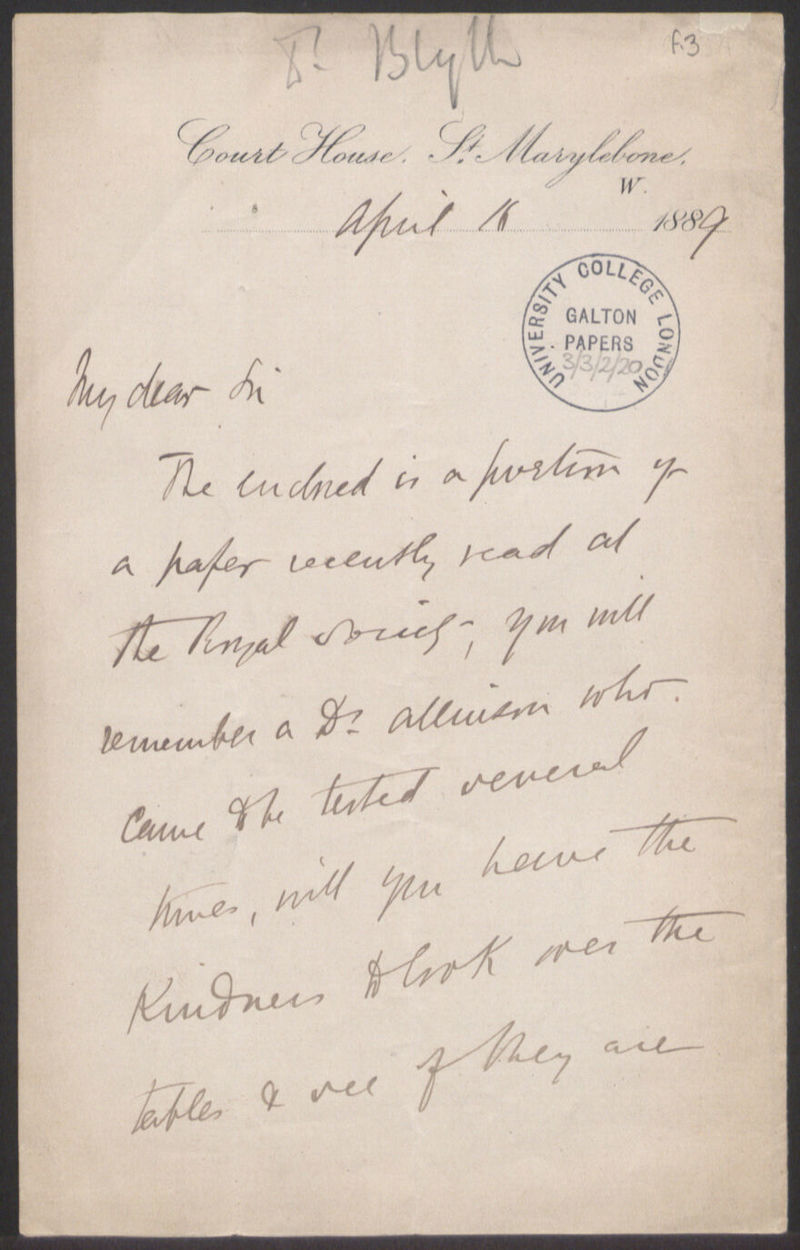 Dr Blyth
f.3
Court House. St. Marylebone.
W.
April 16 1889
UNIVERSITY COLLEGE LONDON
GALTON
PAPERS
3/3/2/20
My dear Sir
The enclosed is a portion of
a paper recently read at
the Royal Society, you will
remember a Dr. Allinson who
came to be tested several
times, will you have the
Kindness to look over the
tables & see if they are